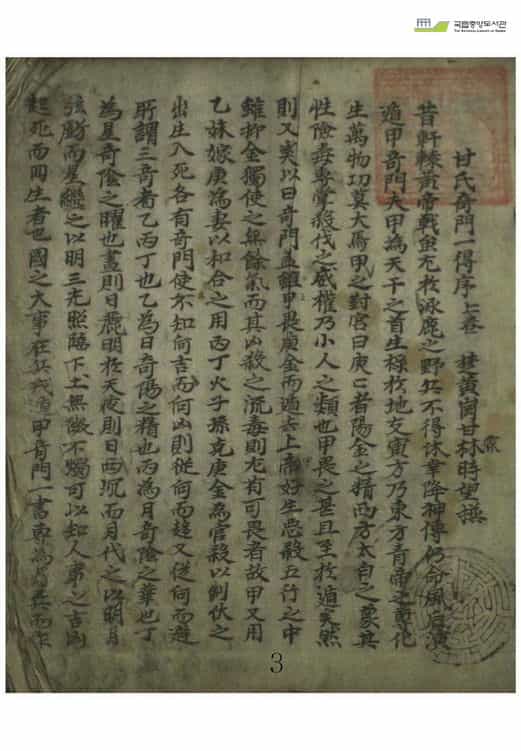 국립중앙도서관
THE NATIONAL LIBRARY OF KOREA
甘氏奇門一得序 上卷 楚黃岡甘霖時望撰
昔軒轅黃帝戰蚩尤於涿鹿之野兵不得休章降神傳仍命風后演
遁甲奇門夫甲為天干之首生祿於地支寅方乃東方青帝之專化
生萬物功莫大焉甲之對宮曰庚〻者陽金之精西方太白之象其
性險毒專掌殺伐之威權乃小人之類也甲畏之甚且至於遁矣然
則又奚以曰奇門盖雖甲畏庚金而遁去上帝好生惡殺五行之中
雖抑金獨使之無餘氣而其凶殺之流毒則尤有可畏者故甲又用
乙妹嫁庚為妻以和合之用丙丁火子孫克庚金為官殺以制伏之
出生入死各有奇門使不知何吉而何凶則從何而趋又從何而避
所謂三奇者乙丙丁也乙為日奇陽之精也丙為月奇陰之華也丁
為星奇陰之曜也晝則日麗明於天夜則日西沉而月代之以明月
弦虧而星繼之以明三光照臨下土無微不燭可以知人事之吉凶
起死而回生者也國之大事在兵戎遁甲奇門一書專為兵而作
3